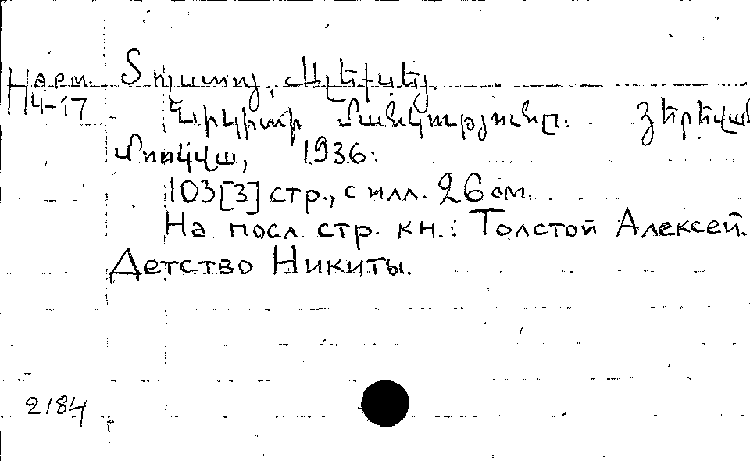 Нарт. Տոլստոյ, Ալեքսեյ.
4-17 Նիկիտայի մանկությունը. Յերեվան
Մոսկվա, 1936.
103[3] стр., с илл. 26 см.
На посл. стр. кн.: Толстой Алексей.
Детство Никиты.
2184